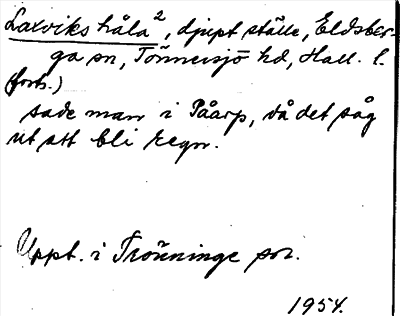 Laxvikshåla², djupt ställe, Eldsber-
ga sn, Tönnersjö hd, Hall. l.
(forts.)
sade man i Påarp, då det såg
ut att bli regn.
Uppt. i Trönninge sn.
1954.